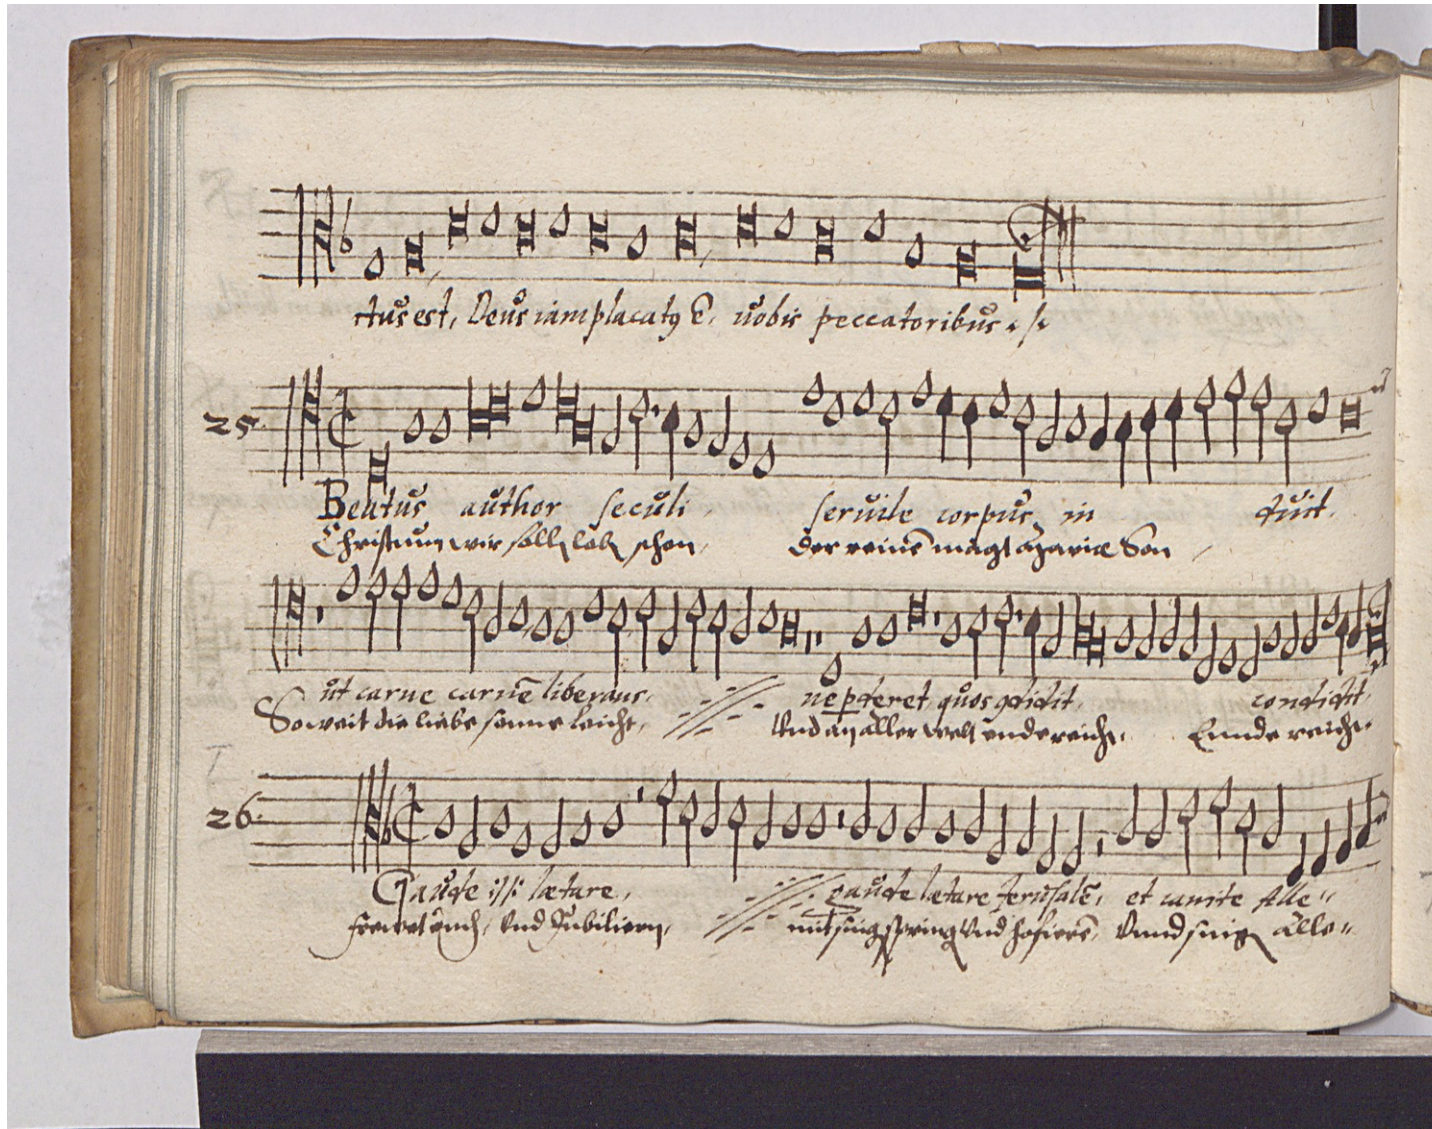 ctus est, Deus iam placatꝯ ē. uobis peccatoribus
25
Beatus author seculi, seruile corpus in duit.
Christum wir solln lobn schon, Der reinē magt Mariæ Son
ut carne carnē liberans, ne p̱deret quos c̱didit, condidit,
So weit die liebe sonne leücht, Und an aller welt ende reicht, Ennde reicht.
26.
Gaude :/: lætare, gaude lætare Jerusalē, et canite Alle"
Frewet euch, Und Jubiliern, mit sing spring Und hofierē, Unnd singn Alle"